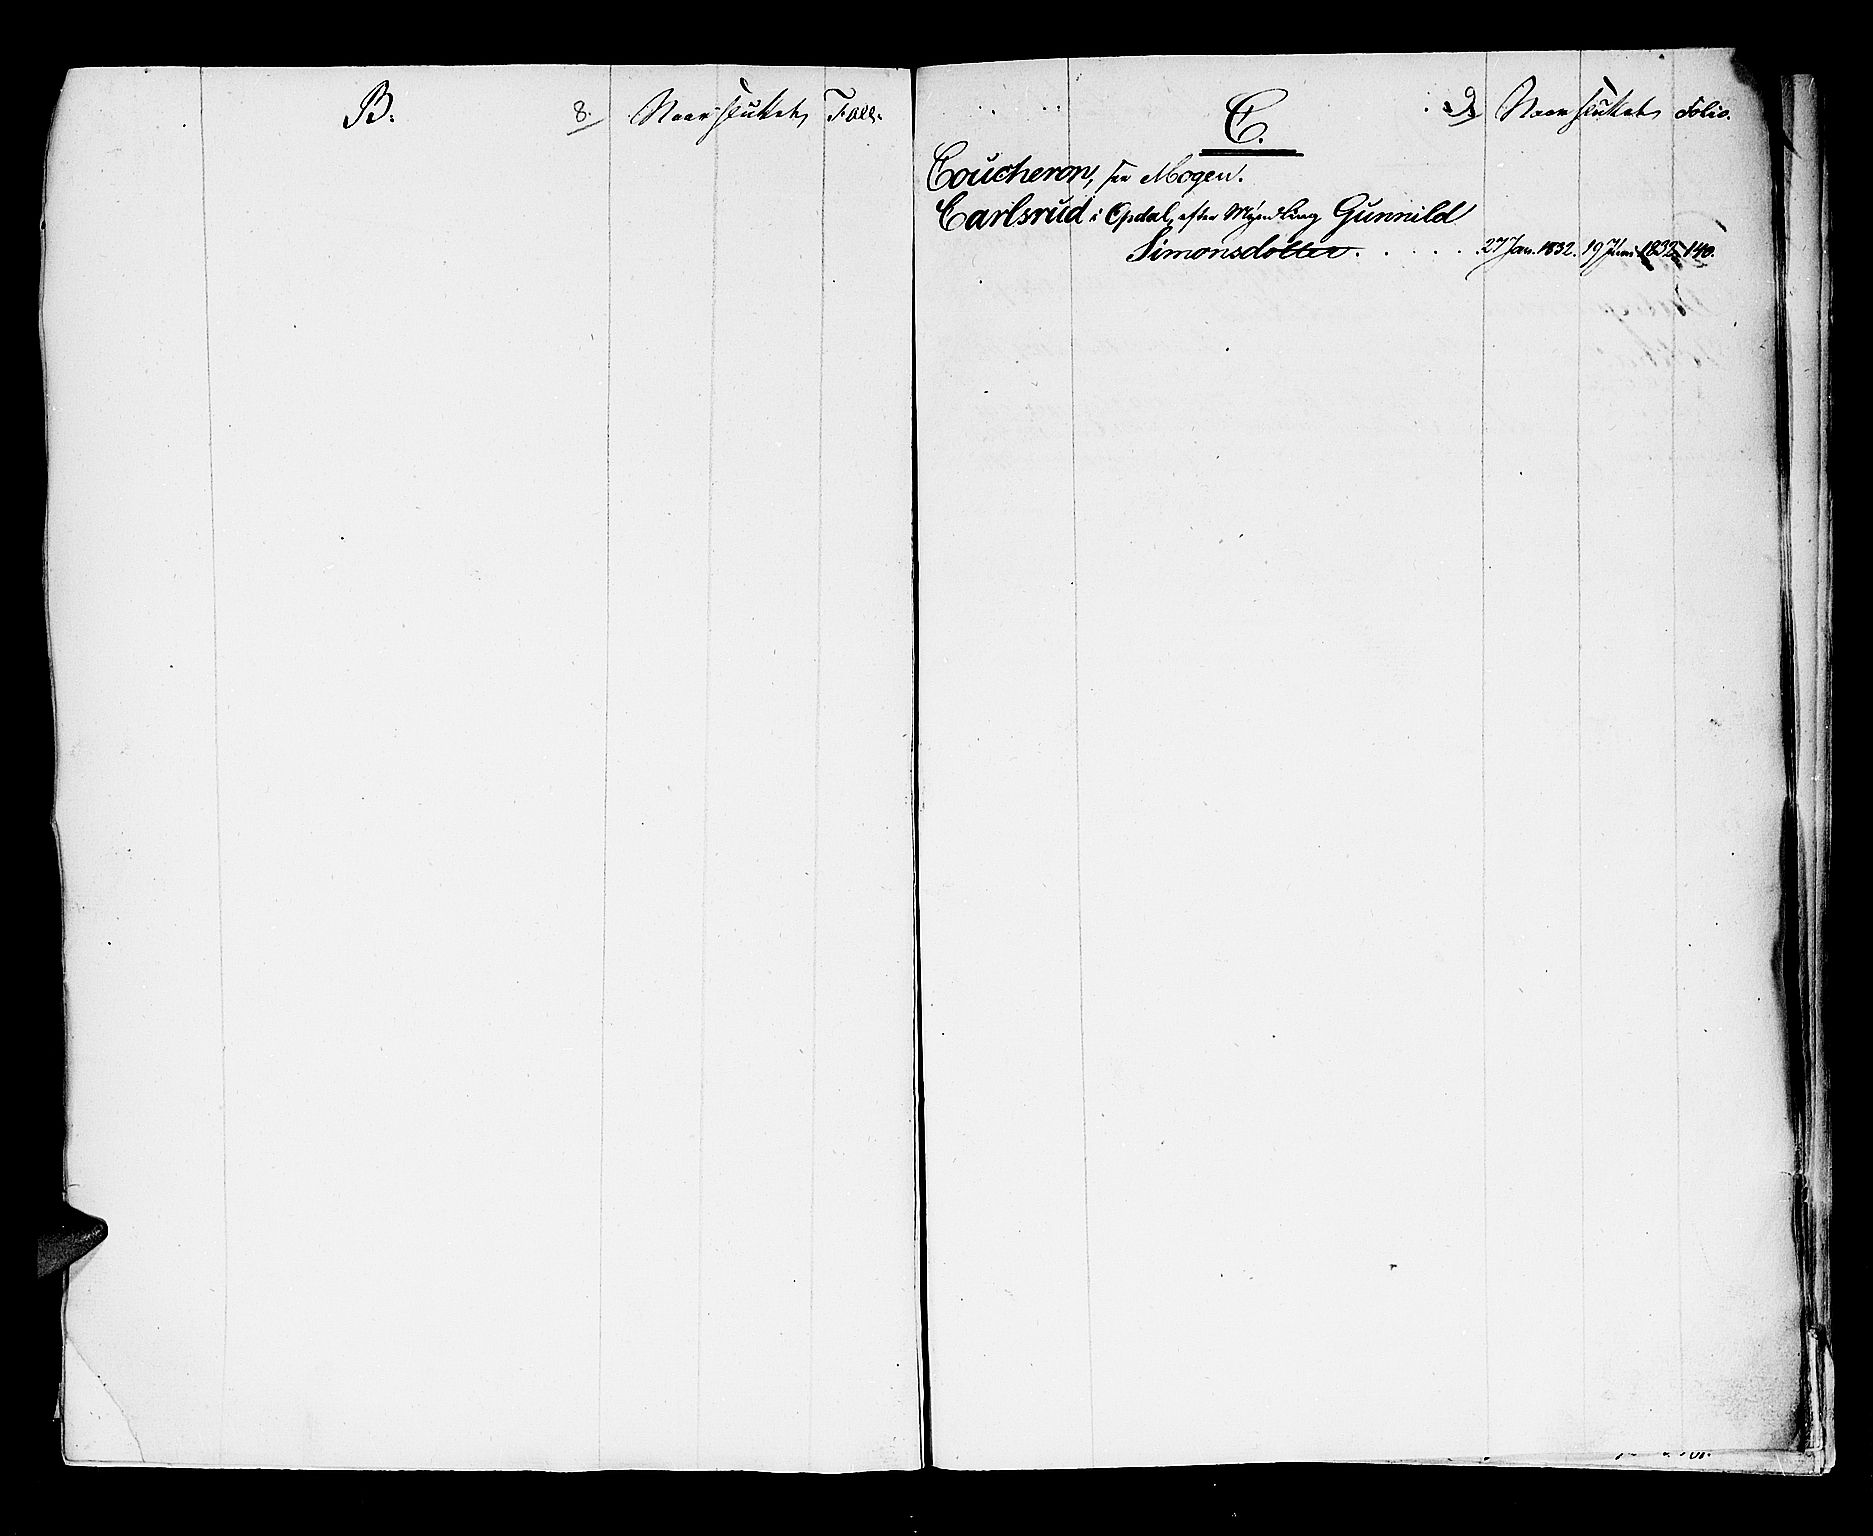 B. 8. Naar sluttet Folio.
C. 9. Naar sluttet Folio.
Coucheron, see Mogen.
Carlsrud i Opdal, efter Myndling Gunnild
Simonsdotter . . . . . 27 Jan. 1832. 19 Juni 1832. 140.